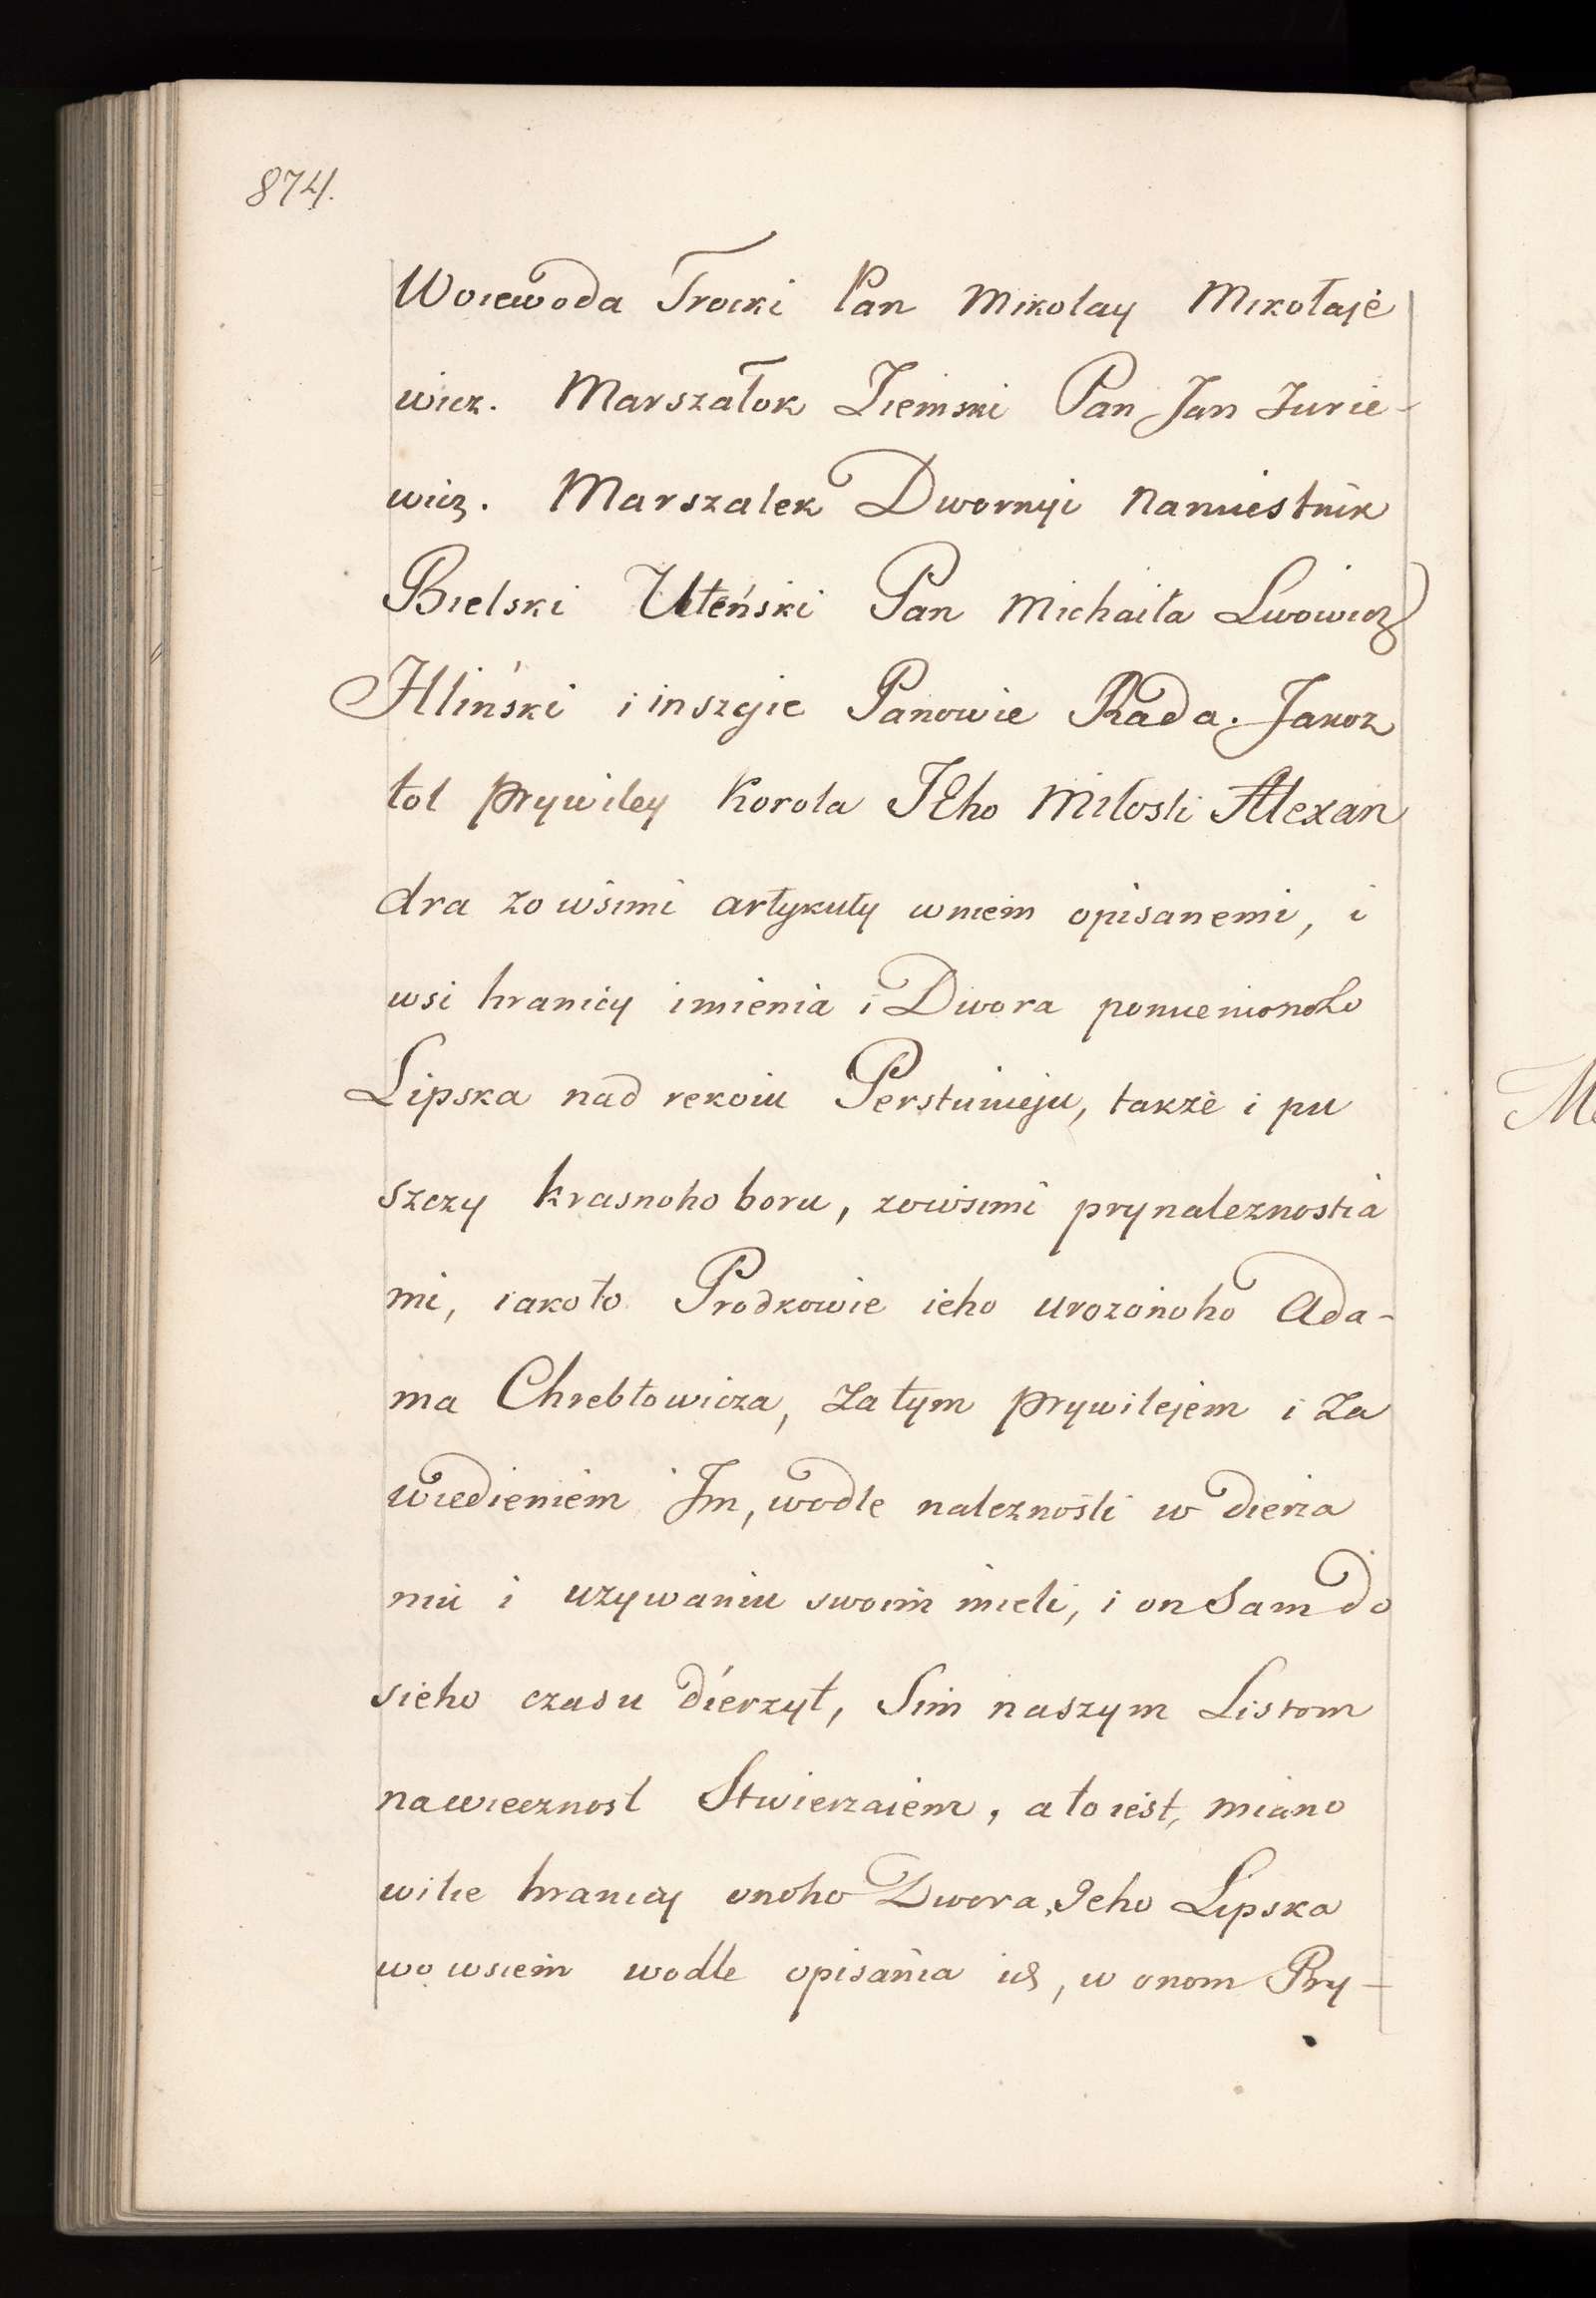 874.
Woiewoda Trocki Pan Mikolay Mikołaje
wicz. Marszałok Ziemski Pan Jan Jurie-
wicz. Marszalek Dwornyi Namiestnik
Bielski Uteński Pan Michaiła Lwowicz
Hliński i inszyie Panowie Rada. Jakoz
tot prywiley Korola JEho Miłosti Alexan
dra zo wsimi artykuły wniem opisanemi, i
wsi hranicy imienia i Dwora pomienionoho
Lipska nad rekoiu Perstunieju, takżè i pu
szczy krasnoho boru, zowsimi prynaleznostia
mi, iako to Prodkowie ieho urozonoho Ada-
ma Chrebtowicza, za tym prywilejem i za
wiedieniem Im, wodle nalezności w dierża
niu i uzywaniu swoim mieli, i on Sam do
sieho czasu dierzył, Sim naszym Listom
nawiecznost Stwierzaiem, a to iest, miano
wite hranicy onoho Dwora, Jeho Lipska
wo wsiem wodle opisania ich, w onom Pry-
M